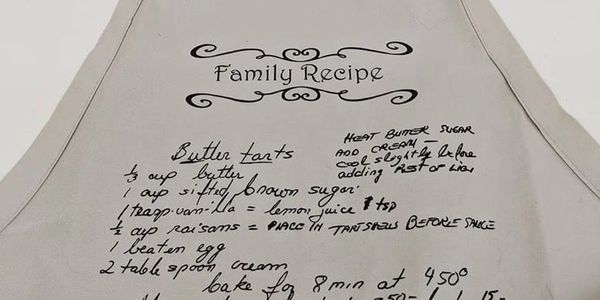 Family Recipe
Butter tarts
HEAT BUTTER SUGAR
ADD CREAM —
cool slightly before
adding REST of
⅓ cup butter
1 cup sifted brown sugar
1 teasp. vanilla = lemon juice 1 tsp
½ cup raisans = PLACE IN TARTSHELLS BEFORE SAUCE
1 beaten egg
2 table spoon cream
bake for 8 min at 450°